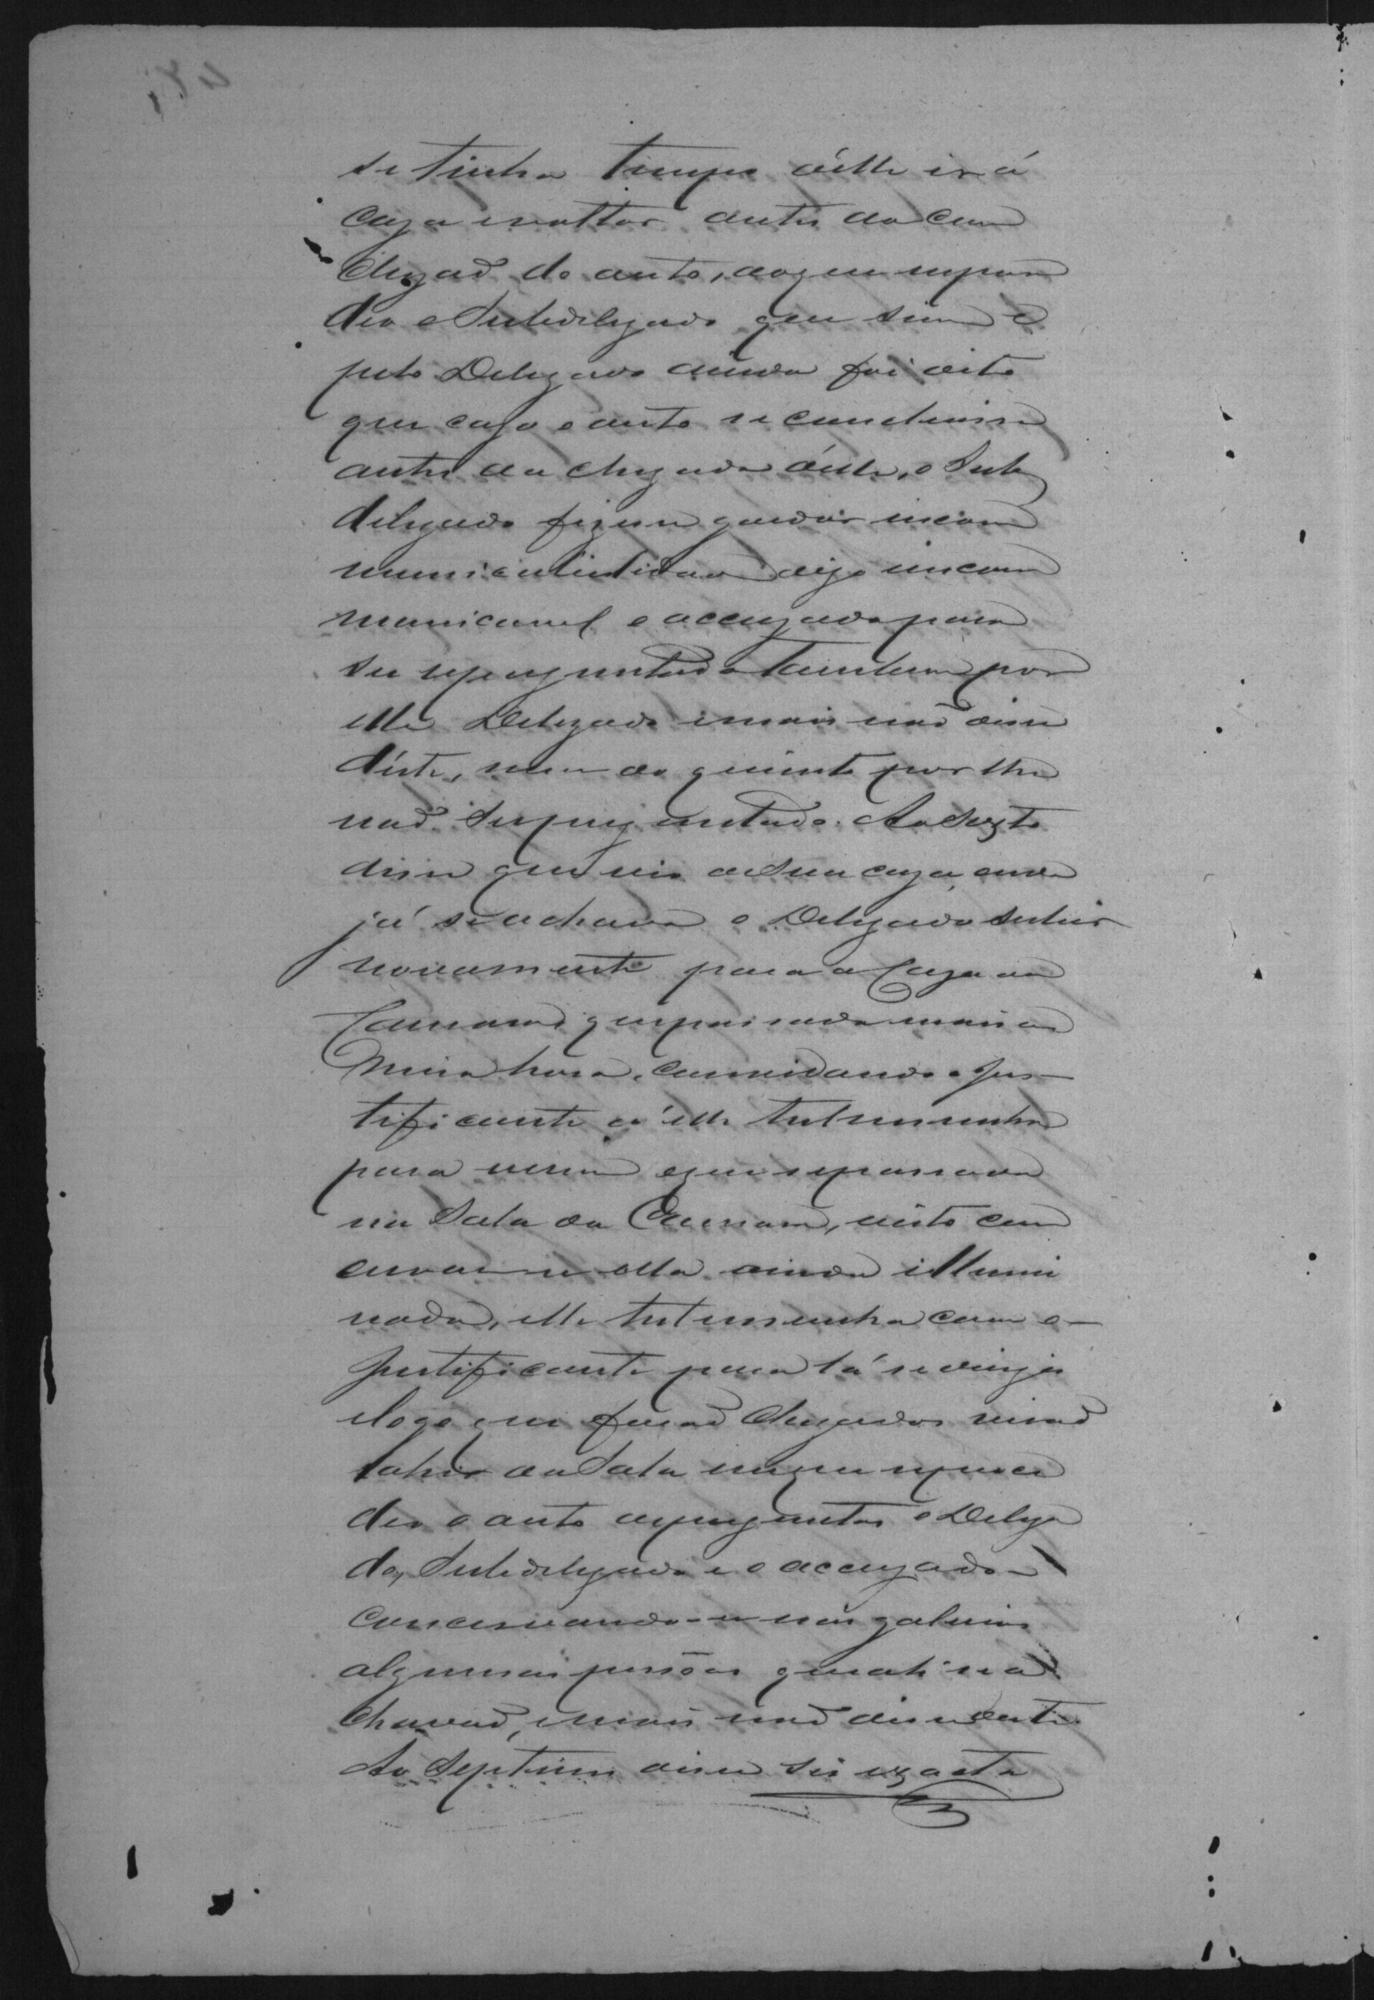 se tinha tempo d'elle ir á
caza e voltar antes da con
cluzaõ do auto, ao que respon
deo o Subdelegado que sim e
pelo Delegado ainda foi dito
que cazo o auto se concluisse
antes da chegada d'elle, o Sub
delegado fizesse guardar incom
municabilidade digo incom
municavel o accuzado para
ser reperguntado tambem por
elle Delegado e mais naõ disse
d'este, nem do quinto por lhe
naõ ser perguntado. Ao Sexto
disse que vio de sua caza, onde
já se achava o Delegado subir
novamente para a Caza da
Camara, e que passada mais de
meia hora, convidando o Jus-
tificante a elle testemunha
para verem o que se passava
na Sala da Camara, visto con
servar-se ella ainda illumi
nada, elle testemunha com o
Justificante para lá se dirigio
e logo que foraõ chegados viraõ
sahir da Sala em que se proce
deo o auto de perguntas o Delega
do, Subdelegado e o accuzado
conservando-se nas galerias
algumas pessôas que ali se a
chavaõ, e mais naõ disse deste.
Ao Septimo disse ser exacta